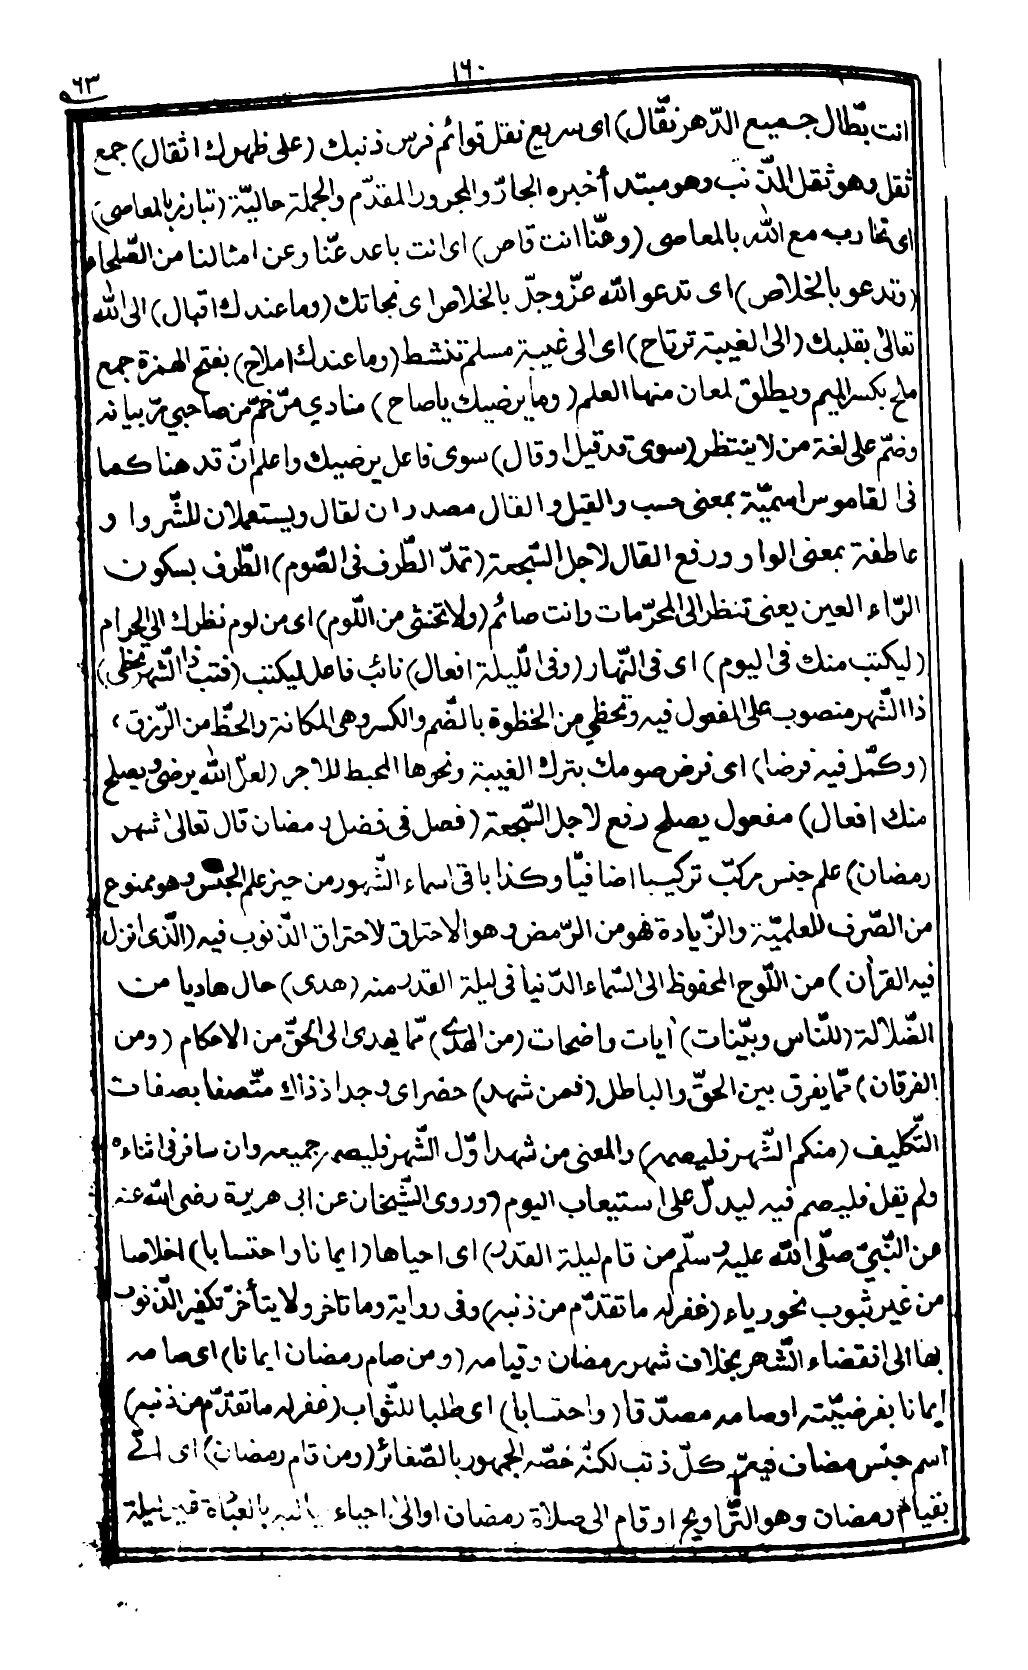 ١٦٠
٦٣
انت بطّال جميع الدّهر نقّال) اى سريع نقل قوائم فرس ذنبك (على ظهرك اثقال) جمع
ثقل وهو ثقل الذّنب وهو مبتدأ خبره الجارّ والمجرور المقدّم والجملة حاليّة (تبارز بالمعاصى)
اى تحارب مع الله بالمعاصى (وعنّا انت قاص) اى انت باعد عنّا وعن امثالنا من الصّلحاء
(وتدعو بالخلاص) اى تدعو الله عزّ وجلّ بالخلاص اى نجاتك (وما عندك اقبال) الى الله
تعالى بقلبك (الى الغيبة ترتاح) اى الى غيبة مسلم تنشط (وما عندك املاح) بفتح الهمزة جمع
ملح بكسر الميم ويطلق لمعان منها العلم (وما يرضيك ياصاح) منادي مرّخم من صاحبي مرّ بيانه
وضمّ على لغة من لا ينتظر (سوى قد قيل اوقال) سوى فاعل يرضيك واعلم انّ قد هنا كما
فى القاموس اسميّة بمعنى حسب والقيل والقال مصدران لقال ويستعملان للشّر واو
عاطفة بمعنى الواو ورفع القال لاجل السّجعة (تمدّ الطّرف فى الصّوم) الطّرف بسكون
الرّاء العين يعنى تنظر الى المحرّمات وانت صائم (ولا تخشى من اللّوم) اى من لوم نظرك الى الحرام
(ليكتب منك فى اليوم) اى فى النّهار (وفى اللّيلة افعال) نائب فاعل ليكتب (فتب ذا الشّهر تحظى)
ذا الشّهر منصوب على المفعول فيه وتحظى من الحظوة بالضّم والكسر وهى المكانة والحظّ من الرّزق،
(وكمّل فيه فرضا) اى فرض صومك بترك الغيبة ونحوها المحبط للاجر (لعلّ الله يرضى ويصلح
منك افعال) مفعول يصلح رفع لاجل السّجعة (فصل فى فضل رمضان قال تعالى شهر
رمضان) علم جنس مركّب تركيبا اضافيّا وكذا باقى اسماء الشّهور من حيز علم الجنس وهو ممنوع
من الصّرف للعلميّة والزّيادة فهو من الرّمض وهو الاحتراق لاحتراق الذّنوب فيه (الّذى انزل
فيه القرأن) من اللّوح المحفوظ الى السّماء الدّنيا فى ليلة القدر منه (هدى) حال هاديا من
الضّلالة (للنّاس وبيّنات) أيات واضحات (من الهدى) ممّا يهدى الى الحقّ من الاحكام (ومن
الفرقان) ممّا يفرق بين الحقّ والباطل (فمن شهد) حضر اى وجد اذ ذاك متّصفا بصفات
التّكليف (منكم الشّهر فليصمه) والمعنى من شهد اوّل الشّهر فليصم جميعه وان سافر فى اثناءه
ولم يقل فليصم فيه ليدلّ على استيعاب اليوم (وروى الشّيخان عن ابى هريرة رضى الله عنه
عن النّبيّ صلّى الله عليه وسلّم من قام ليلة القدر) اى احياها (ايمانا واحتسابا) اخلاصا
من غير شوب نحو رياء (غفر له ما تقدّم من ذنبه) وفى رواية وما تأخر ولا يتأخّر تكفير الذّنوب
بها الى انقضاء الشّهر بخلاف شهر رمضان وقيامه (ومن صام رمضان ايمانا) اى صامه
ايمانا بفرضيّته اوصامه مصدّقا (واحتسابا) اى طلبا للثّواب (غفر له ما تقدّم من ذنبه)
اسم جنس مضاف فيعمّ كلّ ذنب لكنّه خصّه الجمهور بالصّغائر (ومن قام رمضان) اى اتى
بقيام رمضان وهو التّراويح او قام الى صلاة رمضان او الى احياء بالعبادة